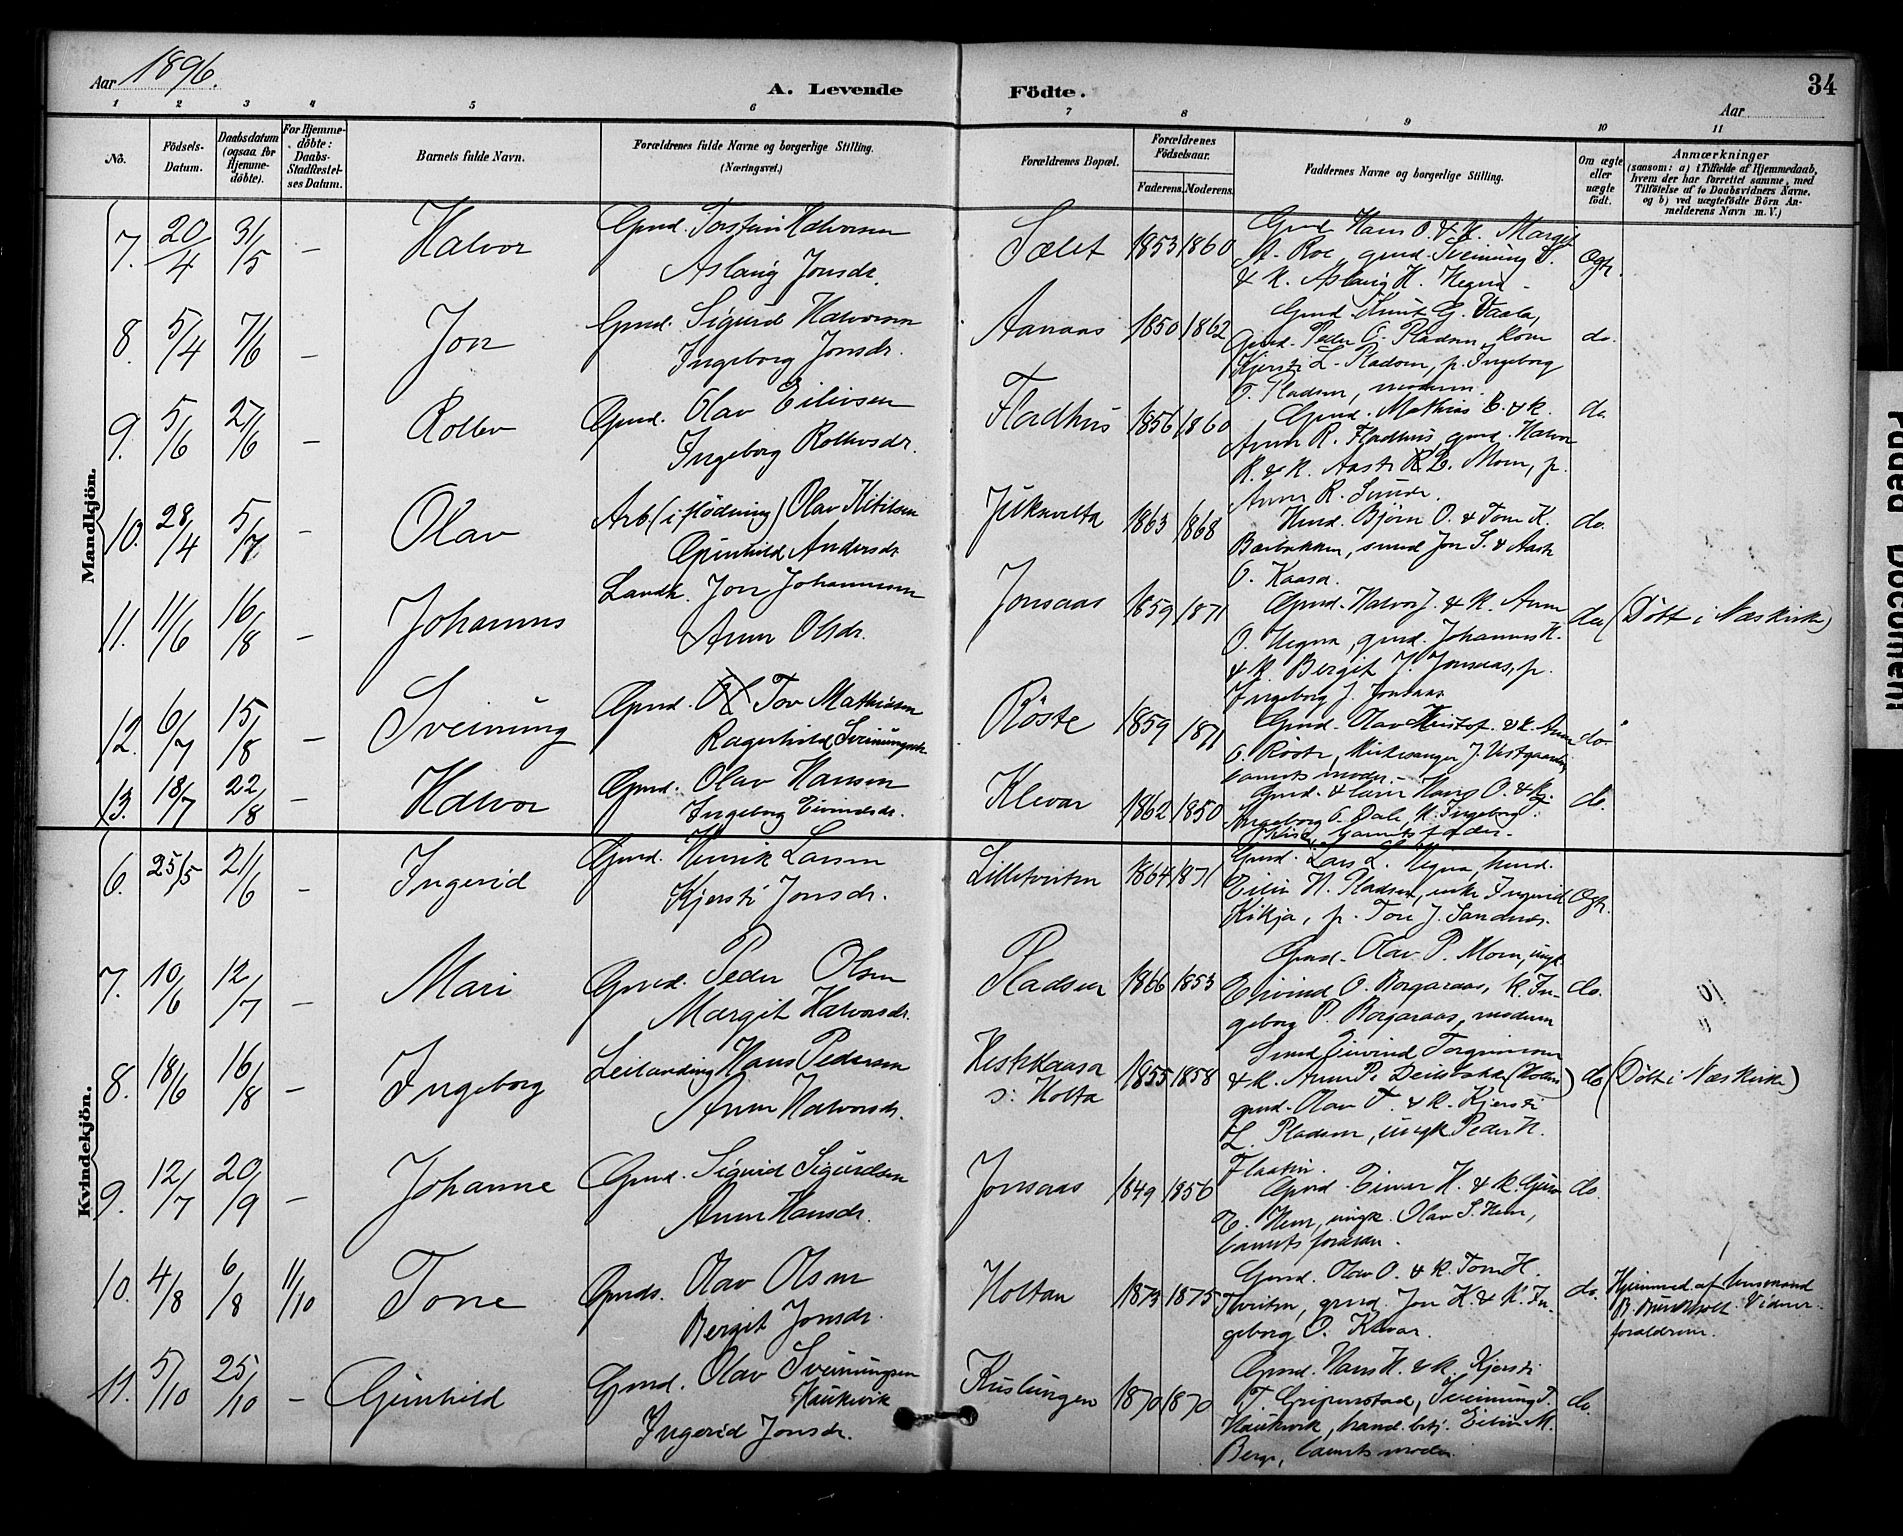 Aar 1896.
A. Levende Födte.
34
Aar
1 2 3 4 5 6 7 8 9 10 11
No.
Födsels-Datum.
Daabsdatum (ogsaa for Hjemme-döbte).
For Hjemme-döbte: Daabs-Stadfæstel-ses Datum.
Barnets fulde Navn.
Forældrenes fulde Navne og borgerlige Stilling. (Næringsvei.)
Forældrenes Bopæl.
Forældrenes Födselsaar.
Faderens. Moderens.
Faddernes Navne og borgerlige Stilling.
Om ægte eller uægte födt.
Anmærkninger
(saasom: a) i Tilfælde af Hjemmedaab, hvem der har forrettet samme, med Tilföielse af to Daabsvidners Navne, og b) ved uægtefödte Börn An-melderens Navn m. V.)
Mandkjön.
7. 20/4 31/5 — Halvor
Gmd. Torstein Halvorsen
Aslaug Jonsdr.
Sælet 1853 1860
Gmd Hans O. & K. Margit
A. Roe, gmd. Sveinung S.
& K. Aslaug H. Hegna -
Ægt.
8. 5/4 7/6 — Jon
Gmd. Sigurd Halvorsen
Ingeborg Jonsdr.
Aanaas 1850 1862
Gmd Knut G. Vaala,
Gmd. Peder O. Pladsen, Kone
Kjersti L. Pladsen, p. Ingeborg
T. Pladsen, moderen.
do.
9. 5/6 27/6 — Rollev
Gmd. Olav Eilivsen
Ingeborg Rollevsdr.
Fladhus 1856 1860
Gmd. Mathias E. & K.
Anne R. Fladhus, gmd. Halvor
R. & K. Aaste L. Moen, p.
Anne R. Sunde.
do
10. 28/4 5/7 — Olav
Arb. (i flödning) Olav Kitilsen
Gunhild Andersdr.
1863 1868
Husmd. Björn O. & Tone K.
Bærbakken, smed Jon S. & Aaste
O. Kaasa.
do.
11. 11/6 16/8 — Johannes
Landh. Jon Johannessen
Anne Olsdr.
Jonsaas 1859 1871
Gmd. Halvor J. & K. Anne
O. Hegna, gmd. Johannes H.
& K. Bergit J. Jonsaas, p.
Ingeborg J. Jonsaas
do (Döbt i Næskirke)
12. 6/7 15/8 — Sveinung
Gmd. Tov Mathissen
Ragnhild Sveinungsdr.
Röste 1859 1871
Gmd. Olav Kristof. & K. Anne
O. Röste, Kirkesanger J. Vestgaarden,
barnets moder.
do
13. 18/7 22/8 — Halvor
Gmd. Olav Hansen
Ingeborg Eivindsdr.
Klevar 1862 1850
Gmd. & Hans O. & K.
Ingeborg O. Dale, K. Ingeborg
barnets fader.
do.
Kvindekjön.
6. 25/5 21/6 — Ingerid
Gmd. Henrik Larsen
Kjersti Jonsdr.
Lilletveiten 1864 1871
Gmd. Lars L. Hegna, husmd.
Eiliv H. Pladsen, enke Ingerid
Kikja, p. Tone J. Sandnes.
Ægt.
7. 10/6 12/7 — Mari
Gmd. Peder Olsen
Margit Halvorsdr.
Pladsen 1866 1853
Gmd. Olav P. Moen, ungk.
Eivind O. Borgaraas, K. In-
geborg P. Borgaraas, moderen
do.
8. 18/6 16/8 — Ingeborg
Leilænding Hans Pedersen
Anne Halvorsdr.
s: Holta
1855 1858
Smed Eivind Torgrimsen
& K. Anne P. (Holta)
gmd. Olav T. & K. Kjersti
L. Pladsen, ungk Peder H.
Flaatin.
do (Döbt i Næskirke)
9. 12/7 20/9 — Johanne
Gmd. Sigurd Sigurdsen
Anne Hansdr.
Jonsaas 1849 1856
Gmd. Einar H. & K. Guro
E. Hem, ungk. Olav S. Hem,
barnets forældre.
do.
10. 4/8 6/8 11/10 Tone
Gmds. Olav Olsen
Bergit Jonsdr.
Holtan 1873 1875
Gmd. Olav O. & K. Tone H.
Tveiten, gmd Jon K. & K. In-
geborg O. Klevar.
do. Hjemmed. af husmand
B. Vidner:
forældrene.
11. 5/10 25/10 — Gunhild
Gmd. Olav Sveinungsen
Haukvik
Ingerid Jonsdr.
Kuslungen 1870 1870
Gmd. Hans H. & K. Kjersti
T. Gripenstad, Sveinung T.
Haukvik, hand.betj. Eiliv M.
Berge, barnets moder.
do.